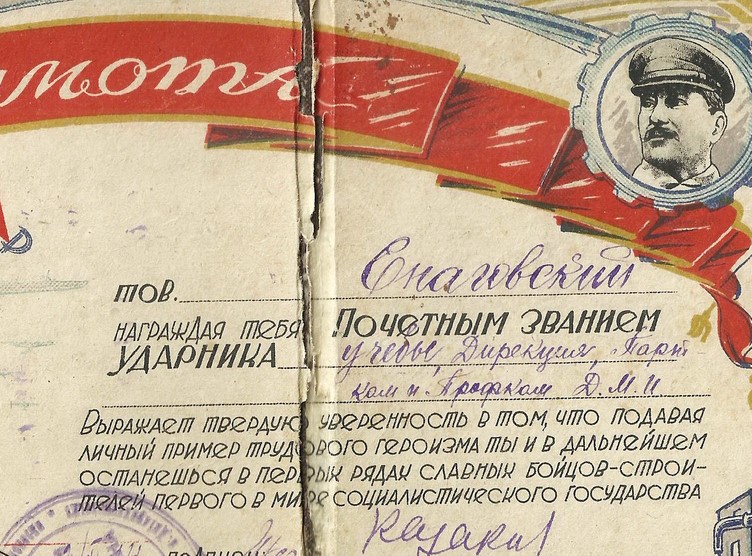 мота
тов. Снаговский
НАГРАЖДАЯ ТЕБЯ ПОЧЕТНЫМ ЗВАНИЕМ
УДАРНИКА учебы, Дирекция, Парт-
ком и Профком Д.М.И.
ВЫРАЖАЕТ ТВЕРДУЮ УВЕРЕННОСТЬ В ТОМ, ЧТО ПОДАВАЯ
ЛИЧНЫЙ ПРИМЕР ТРУДОВОГО ГЕРОИЗМА ТЫ И В ДАЛЬНЕЙШЕМ
ОСТАНЕШЬСЯ В ПЕРВЫХ РЯДАХ СЛАВНЫХ БОЙЦОВ-СТРОИ-
ТЕЛЕЙ ПЕРВОГО В МИРЕ СОЦИАЛИСТИЧЕСКОГО ГОСУДАРСТВА